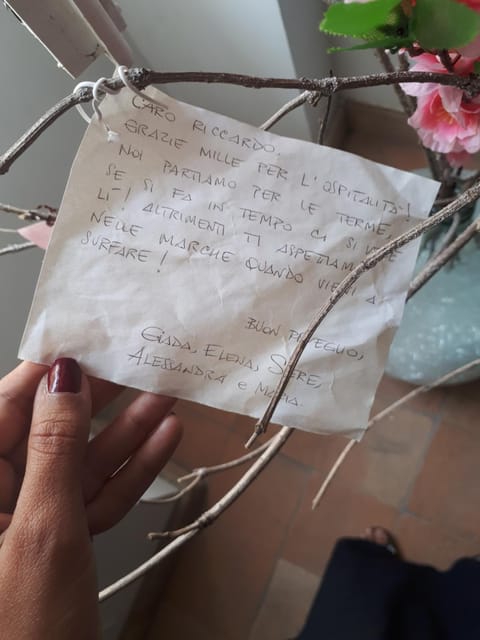 CARO RICCARDO,
GRAZIE MILLE PER L'OSPITALITÀ!
NOI PARTIAMO PER LE TERME,
SE SI FA IN TEMPO CI SI VEDE
LÌ! ALTRIMENTI TI ASPETTIAMO
NELLE MARCHE QUANDO VIENI A
SURFARE!
BUON
GIADA, ELENA,
ALESSANDRA e